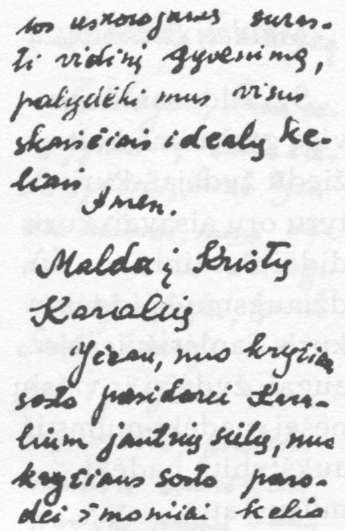 tos
ti vidinį gyvenimą,
palydėki mus visus
skaisčiais idealų ke-
liais
Amen.
Malda į Kristų
Karalių
Jėzau, nuo kryžiaus
sosto pasidarei Kara-
lium jautrių sielų, nuo
kryžiaus sosto paro-
dei žmonijai kelio